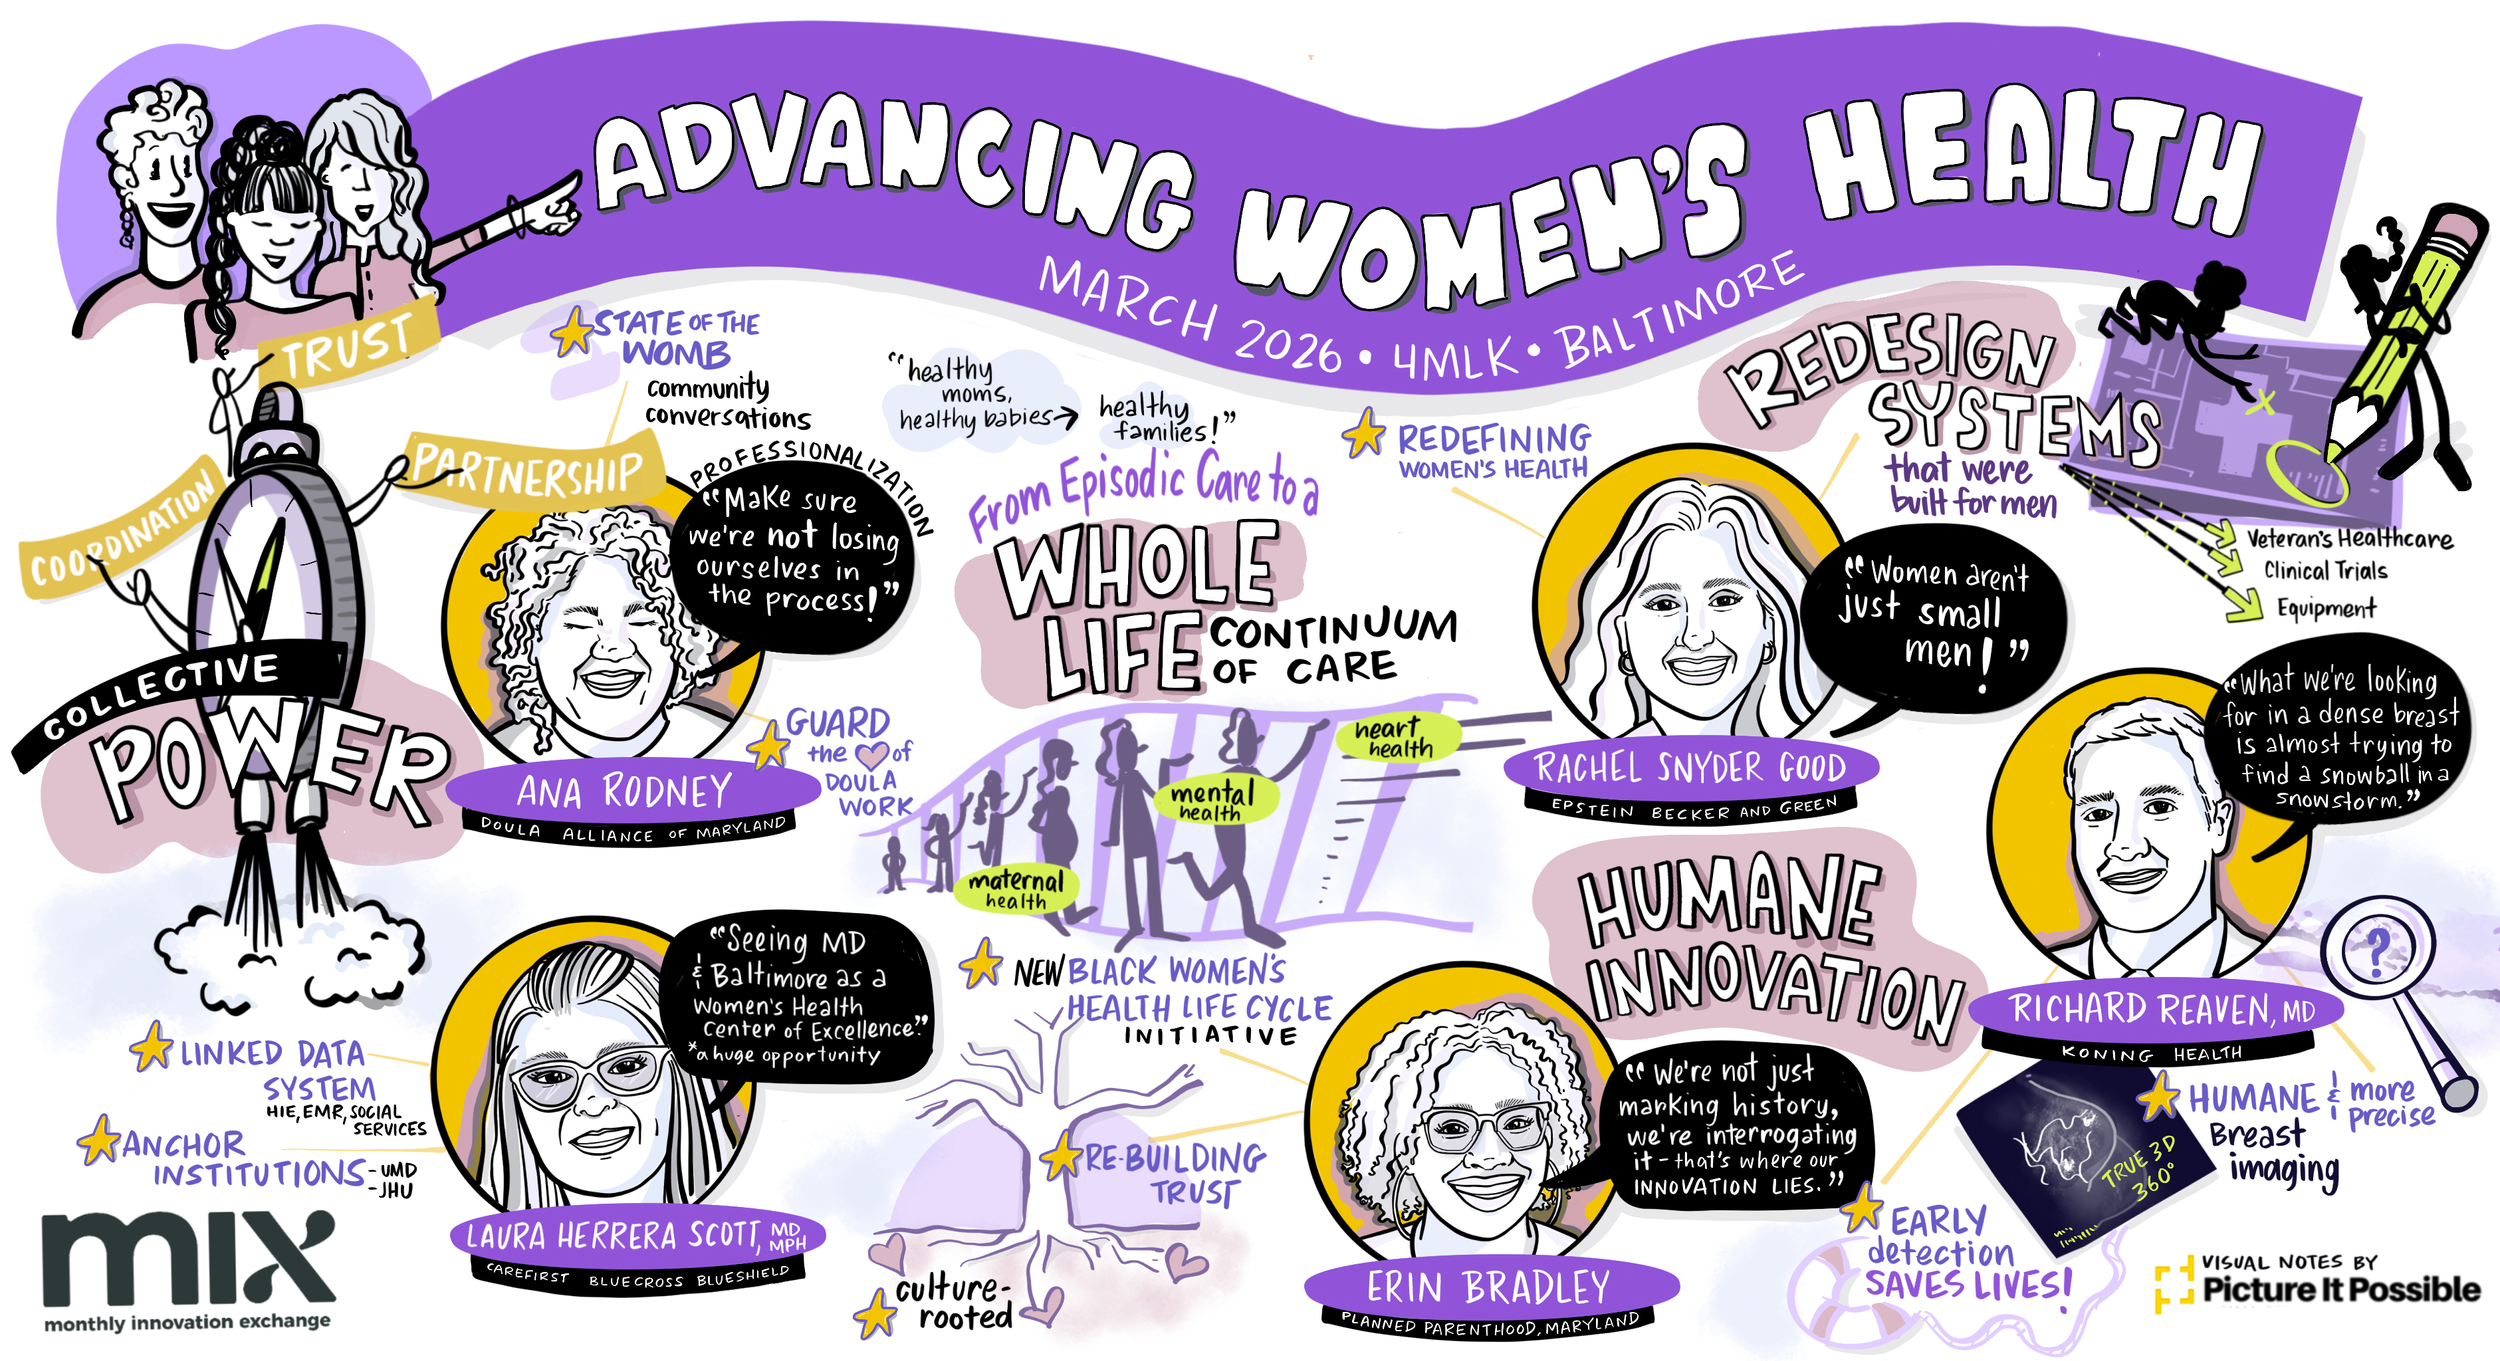 ADVANCING WOMEN'S HEALTH
MARCH 2026 • 4MLK • BALTIMORE
TRUST
COORDINATION
PARTNERSHIP
COLLECTIVE
POWER
STATE OF THE
WOMB
community
conversations
PROFESSIONALIZATION
"Make sure
we're not losing
ourselves in
the process!"
ANA RODNEY
DOULA ALLIANCE OF MARYLAND
GUARD
the ♥ of
DOULA
WORK
"healthy
moms,
healthy babies →
healthy
families!"
From Episodic Care to a
WHOLE
LIFE
CONTINUUM
OF CARE
heart
health
mental
health
maternal
health
REDEFINING
WOMEN'S HEALTH
REDESIGN
SYSTEMS
that were
built for men
Veteran's Healthcare
Clinical Trials
Equipment
"Women aren't
just small
men!"
RACHEL SNYDER GOOD
EPSTEIN BECKER AND GREEN
"What we're looking
for in a dense breast
is almost trying to
find a snowball in a
snowstorm."
RICHARD REAVEN, MD
KONING HEALTH
?
HUMANE & more
precise
Breast
imaging
TRUE 3D
360°
EARLY
detection
SAVES LIVES!
HUMANE
INNOVATION
"Seeing MD
& Baltimore as a
Women's Health
Center of Excellence."
*a huge opportunity
LAURA HERRERA SCOTT, MD
MPH
CAREFIRST BLUECROSS BLUESHIELD
LINKED DATA
SYSTEM
HIE, EMR, SOCIAL
SERVICES
ANCHOR
INSTITUTIONS - UMD
- JHU
NEW BLACK WOMEN'S
HEALTH LIFE CYCLE
INITIATIVE
RE-BUILDING
TRUST
culture-
rooted
"We're not just
marking history,
we're interrogating
it - that's where our
INNOVATION LIES."
ERIN BRADLEY
PLANNED PARENTHOOD, MARYLAND
mix
monthly innovation exchange
VISUAL NOTES BY
Picture It Possible